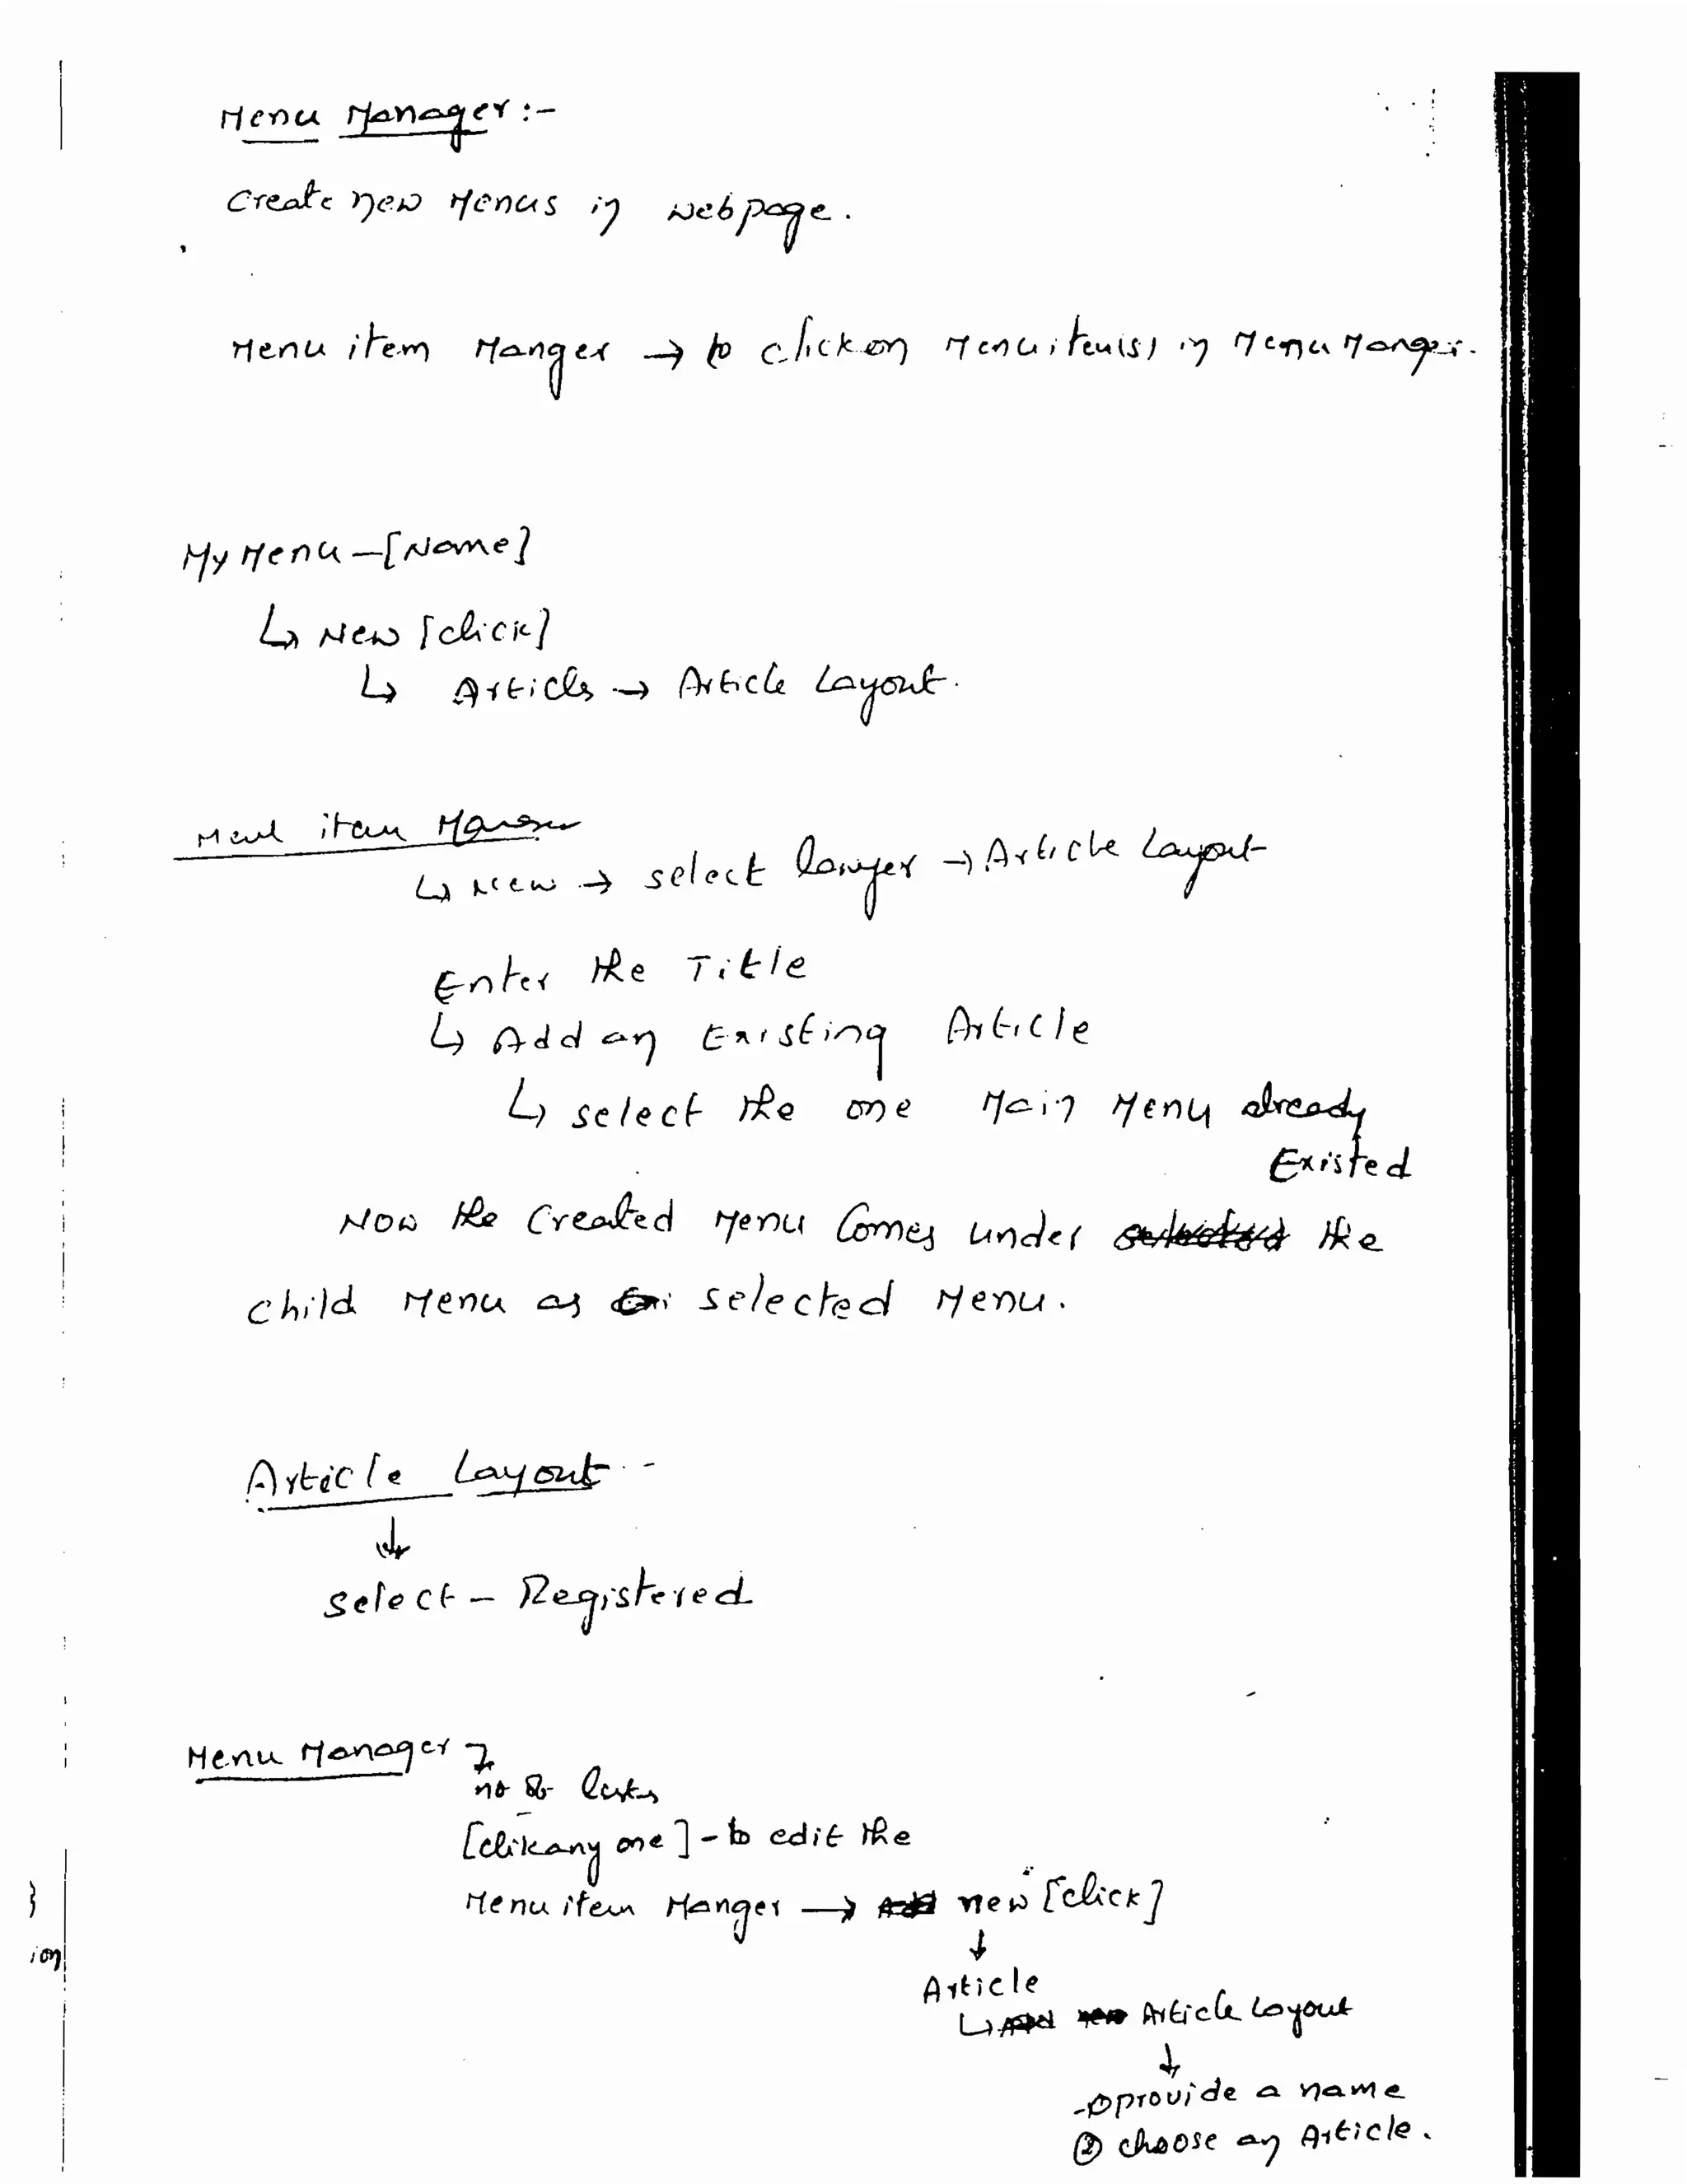 Menu Manager :-
Create new Menus in webpage.
Menu item Manger → to click on Menu item(s) in Menu Manger.
My Menu - [Name]
↳ New [click]
↳ Articles → Article Layout.
item
↳ New → select → Article Layout
Enter the Title
↳ Add an Existing Article
↳ select the one Main Menu already
Existed
Now the Created Menu Comes under the
child Menu as selected Menu.
Article Layout -
↓
select - Registered
Menu Manager
no of
[clik any one] - to edit the
Menu item Manger → new [click]
↓
Article
↳ Article Layout
↓
① provide a name
② choose an Article.
ion